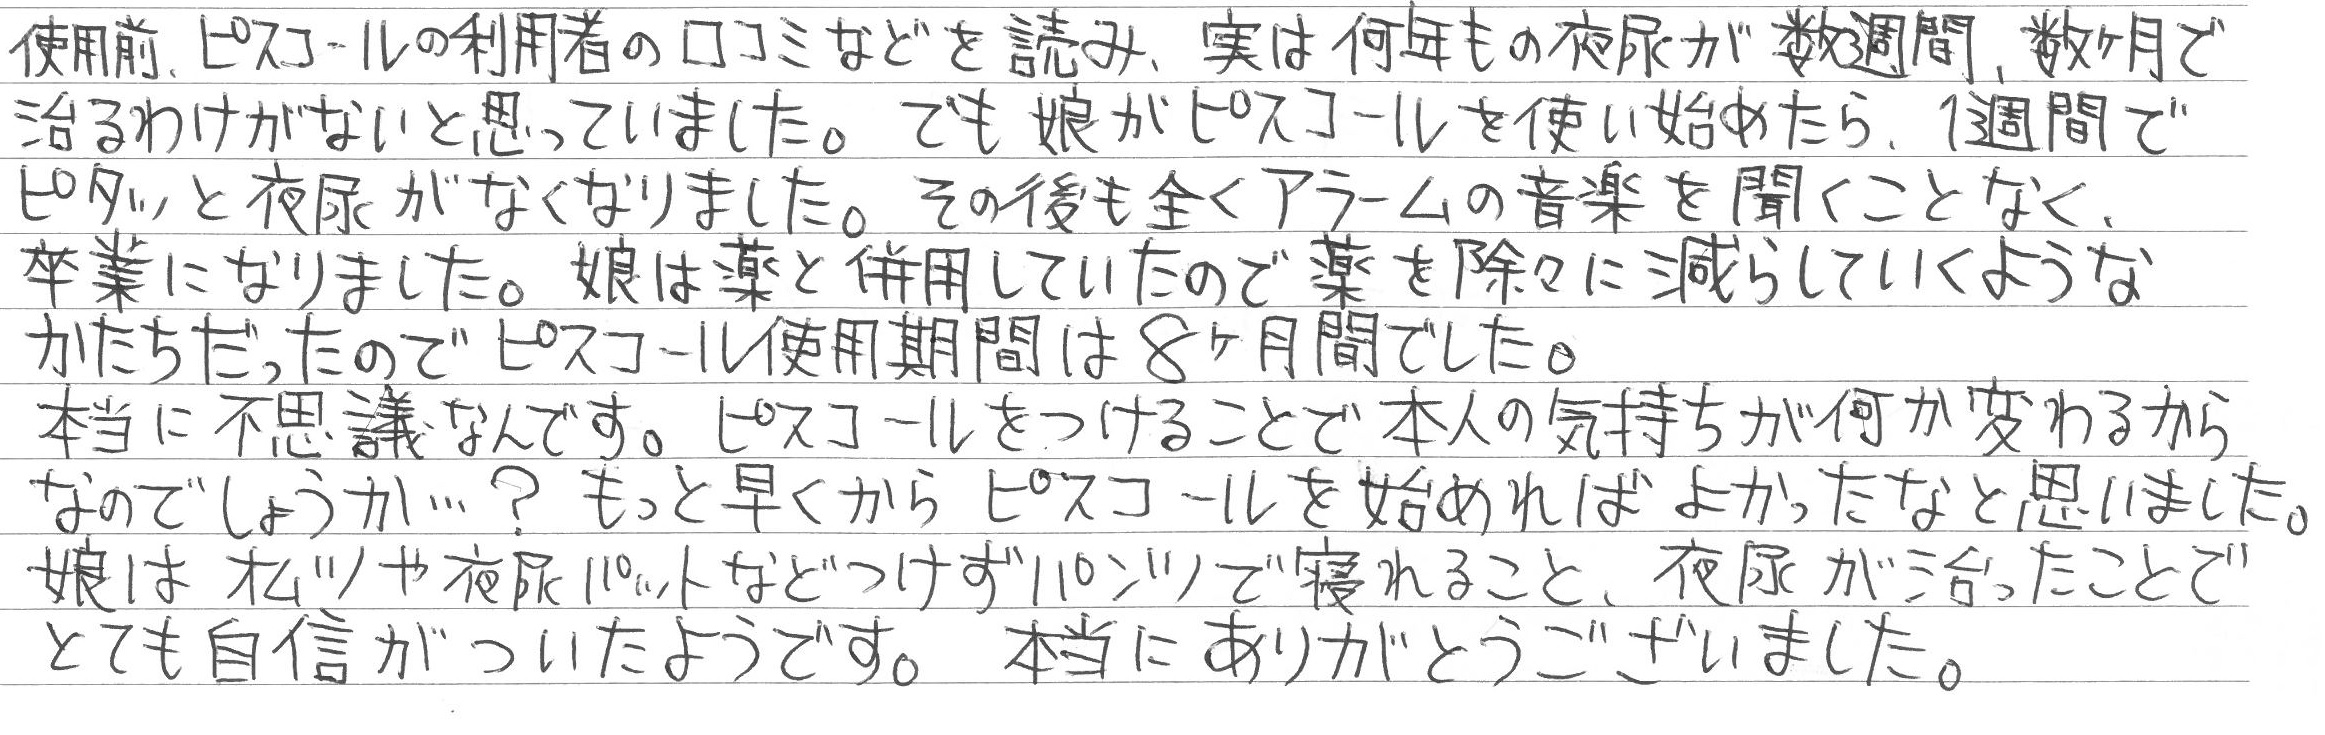 使用前、ピスコールの利用者の口コミなどを読み、実は何年もの夜尿が数週間、数ヶ月で
治るわけがないと思っていました。でも娘がピスコールを使い始めたら、1週間で
ピタッと夜尿がなくなりました。その後も全くアラームの音楽を聞くことなく、
卒業になりました。娘は薬と併用していたので薬を除々に減らしていくような
かたちだったのでピスコール使用期間は8ヶ月間でした。
本当に不思議なんです。ピスコールをつけることで本人の気持ちが何か変わるから
なのでしょうか…?もっと早くからピスコールを始めればよかったなと思いました。
娘はオムツや夜尿パットなどつけずパンツで寝れること、夜尿が治ったことで
とても自信がついたようです。本当にありがとうございました。